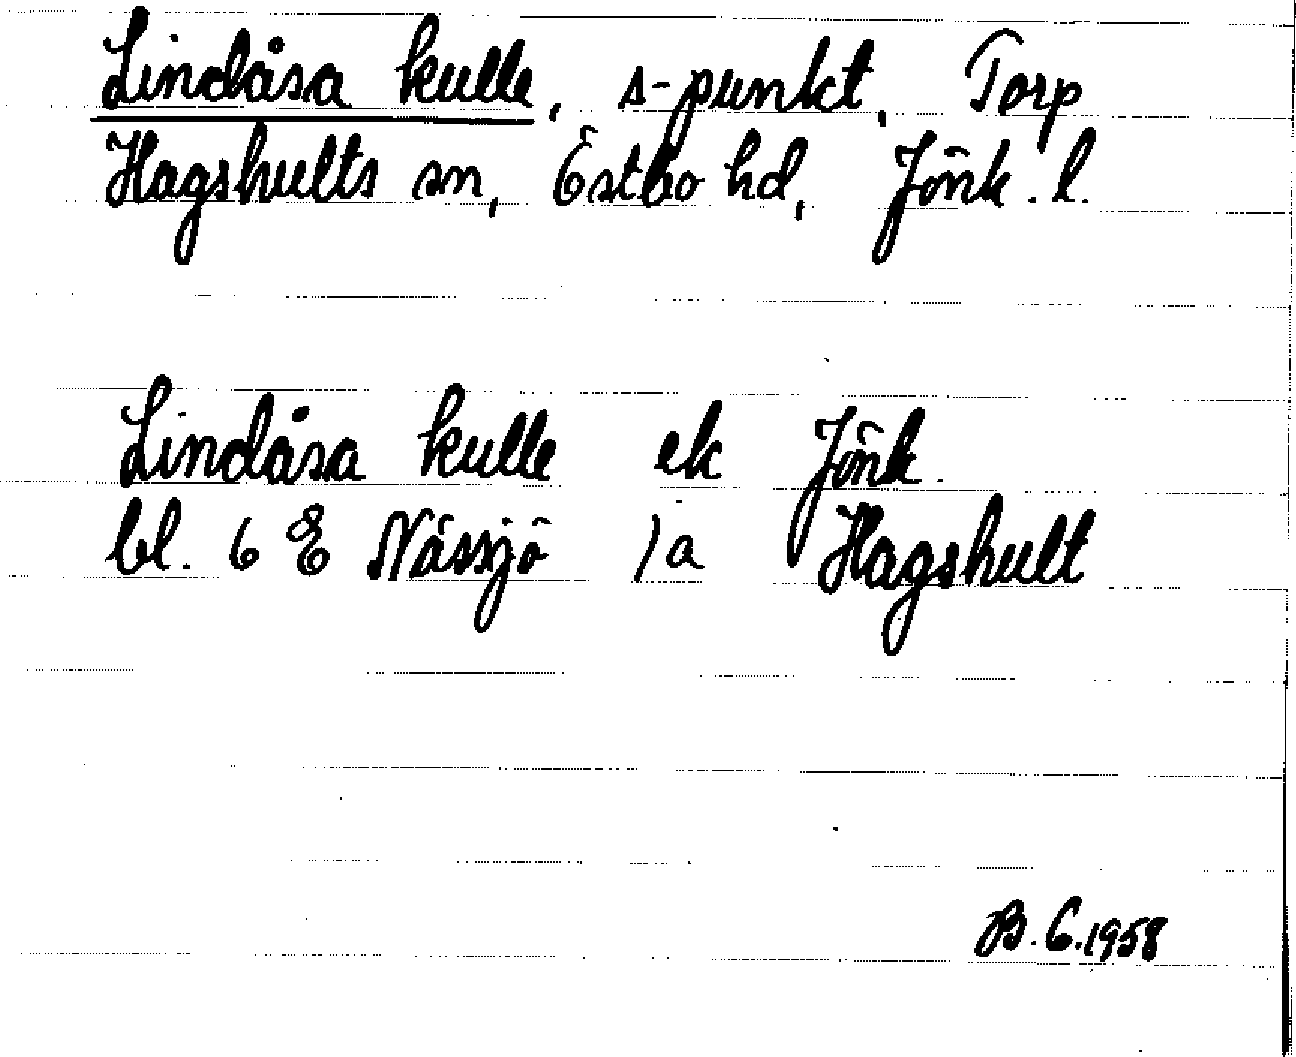 Lindåsa kulle, s-punkt, Torp
Hagshults sn, Östbo hd, Jönk. l.
Lindåsa kulle ek Jönk.
bl. 6 E Nässjö 1a Hagshult
B. G. 1958